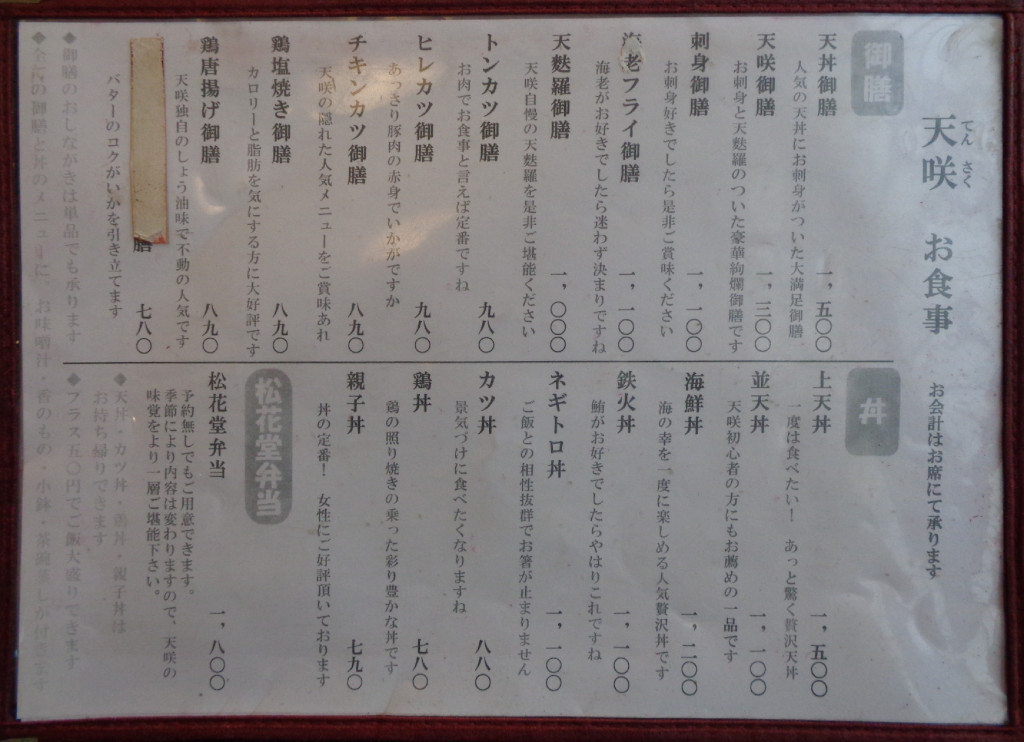 天咲 お食事
てん さく
お会計はお席にて承ります
御膳
天丼御膳 一,五〇〇
人気の天丼にお刺身がついた大満足御膳
天咲御膳 一,三〇〇
お刺身と天麩羅のついた豪華絢爛御膳です
刺身御膳 一,一〇〇
お刺身好きでしたら是非ご賞味ください
海老フライ御膳 一,一〇〇
海老がお好きでしたら迷わず決まりですね
天麩羅御膳 一,〇〇〇
天咲自慢の天麩羅を是非ご堪能ください
トンカツ御膳 九八〇
お肉でお食事と言えば定番ですね
ヒレカツ御膳 九八〇
あっさり豚肉の赤身でいかがですか
チキンカツ御膳 八九〇
天咲の隠れた人気メニューをご賞味あれ
鶏塩焼き御膳 八九〇
カロリーと脂肪を気にする方に大好評です
鶏唐揚げ御膳 八九〇
天咲独自のしょう油味で不動の人気です
膳 七八〇
バターのコクがいかを引き立てます
◆御膳のおしながきは単品でも承ります
丼
上天丼 一,五〇〇
一度は食べたい! あっと驚く贅沢天丼
並天丼 一,一〇〇
天咲初心者の方にもお薦めの一品です
海鮮丼 一,二〇〇
海の幸を一度に楽しめる人気贅沢丼です
鉄火丼 一,一〇〇
鮪がお好きでしたらやはりこれですね
ネギトロ丼 一,一〇〇
ご飯との相性抜群でお箸が止まりません
カツ丼 八八〇
景気づけに食べたくなりますね
鶏丼 七八〇
鶏の照り焼きの乗った彩り豊かな丼です
親子丼 七九〇
丼の定番! 女性にご好評頂いております
松花堂弁当
松花堂弁当 一,八〇〇
予約無しでもご用意できます。
季節により内容は変わりますので、天咲の
味覚をより一層ご堪能下さい。
◆天丼・カツ丼・鶏丼・親子丼は
お持ち帰りできます
◆プラス五〇円でご飯大盛りできます
◆全ての御膳と丼のメニューに、お味噌汁・香のもの・小鉢・茶碗蒸しが付きます